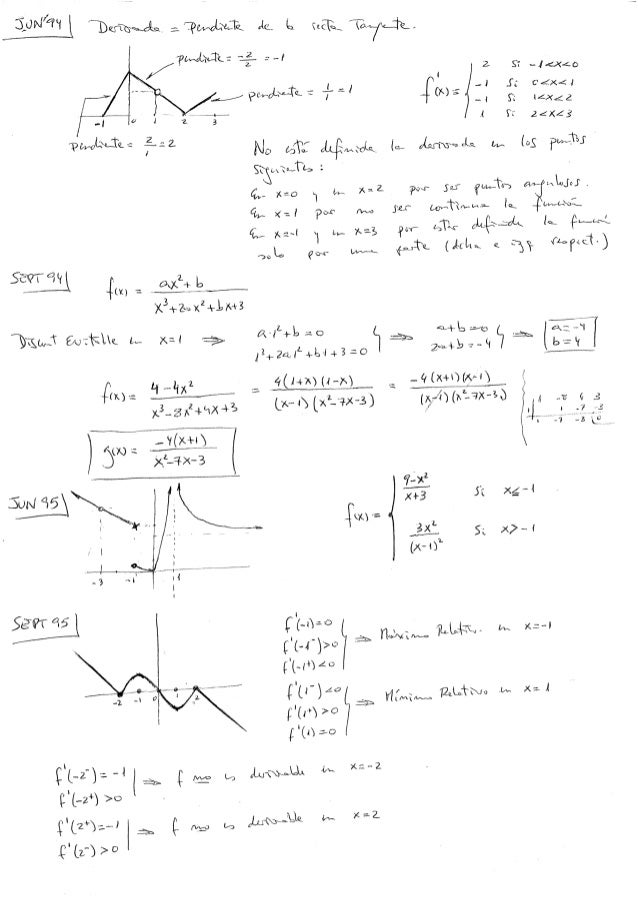 JUN'94 Derivada = Pendiente de la recta Tangente.
pendiente = -2/2 = -1
pendiente = 1/1 = 1
-1 0 1 2 3
pendiente = 2/1 = 2
f'(x) = { 2 Si -1<x<0
-1 Si 0<x<1
-1 Si 1<x<2
1 Si 2<x<3
No está definida la derivada en los puntos
siguientes:
En x=0 y en x=2 por ser puntos angulosos.
En x=1 por no ser continua la función
En x=-1 y en x=3 por estar definida la función
solo por una parte (dcha e izq respect.)
SEPT 94 f(x) = (ax²+b)/(x³+2ax²+bx+3)
Discont Evitable en x=1 ⇒ a·1²+b=0
1³+2a1²+b1+3=0 } ⇒ a+b=0
2a+b=-4 } ⇒ a=-4
b=4
f(x) = (4-4x²)/(x³-8x²+4x+3) = 4(1+x)(1-x)/((x-1)(x²-7x-3)) = -4(x+1)(x-1)/((x-1)(x²-7x-3))
1 -8 4 3
1 1 -7 -3
1 -7 -3 0
g(x) = -4(x+1)/(x²-7x-3)
JUN 95
-3 -1 1
f(x) = { (9-x²)/(x+3) Si x≤-1
3x²/(x-1)² Si x>-1
SEPT 95
-2 -1 0 1 2
f'(-1)=0
f'(-1⁻)>0
f'(-1⁺)<0 } ⇒ Máximo Relativo en x=-1
f'(1⁻)<0
f'(1⁺)>0
f'(1)=0 } ⇒ Mínimo Relativo en x=1
f'(-2⁻)=-1
f'(-2⁺)>0 | ⇒ f no es derivable en x=-2
f'(2⁺)=-1
f'(2⁻)>0 | ⇒ f no es derivable en x=2